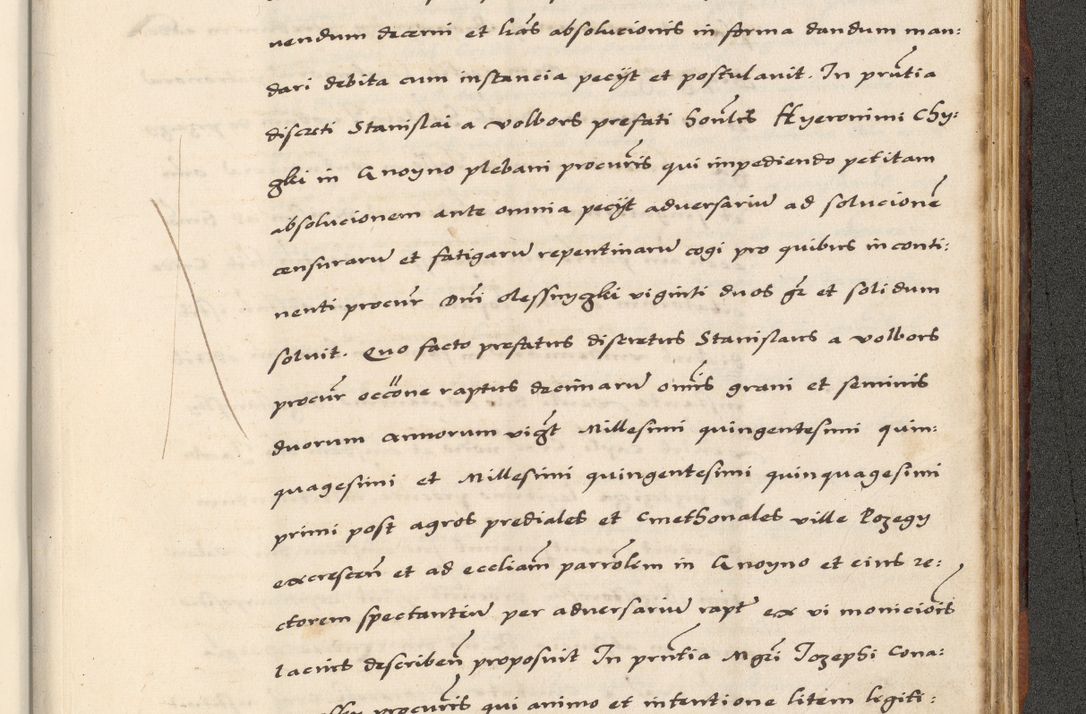 uendum decerni et lras absolucionis in forma dandum man:
dari debita cum instancia pecijt et postulauit. In prntia
discreti Stanislai a volbors prefati honlis Hyeronimi Chy:
zki in Gnoyno plebani procuris qui impediendo petitam
absolucionem ante omnia pecijt adversariu ad solucione
censuraru et fatigaru repentinaru cogi pro quibus inconti:
nenti procur Dni olessnyczki viginti duos gr et solidum
soluit. Quo facto prefatus discretus Stanislaus a volbors
procur occone raptus decimaru omis grani et seminis
duorum annorum vigt Millesimi quingentesimi quin:
quagesimi et Millesimi quingentesimi quinquagesimi
primi post agros prediales et cmethonales ville Rozegy
excrescen et ad eccliam parrolem in Gnoyno et eius re:
ctorem spectantiu per adversariu rapt ex vi moniciois
lacius describen proposuit In prntia Mgri Jozephi Cona:
procuris qui animo et intentione litem legiti: